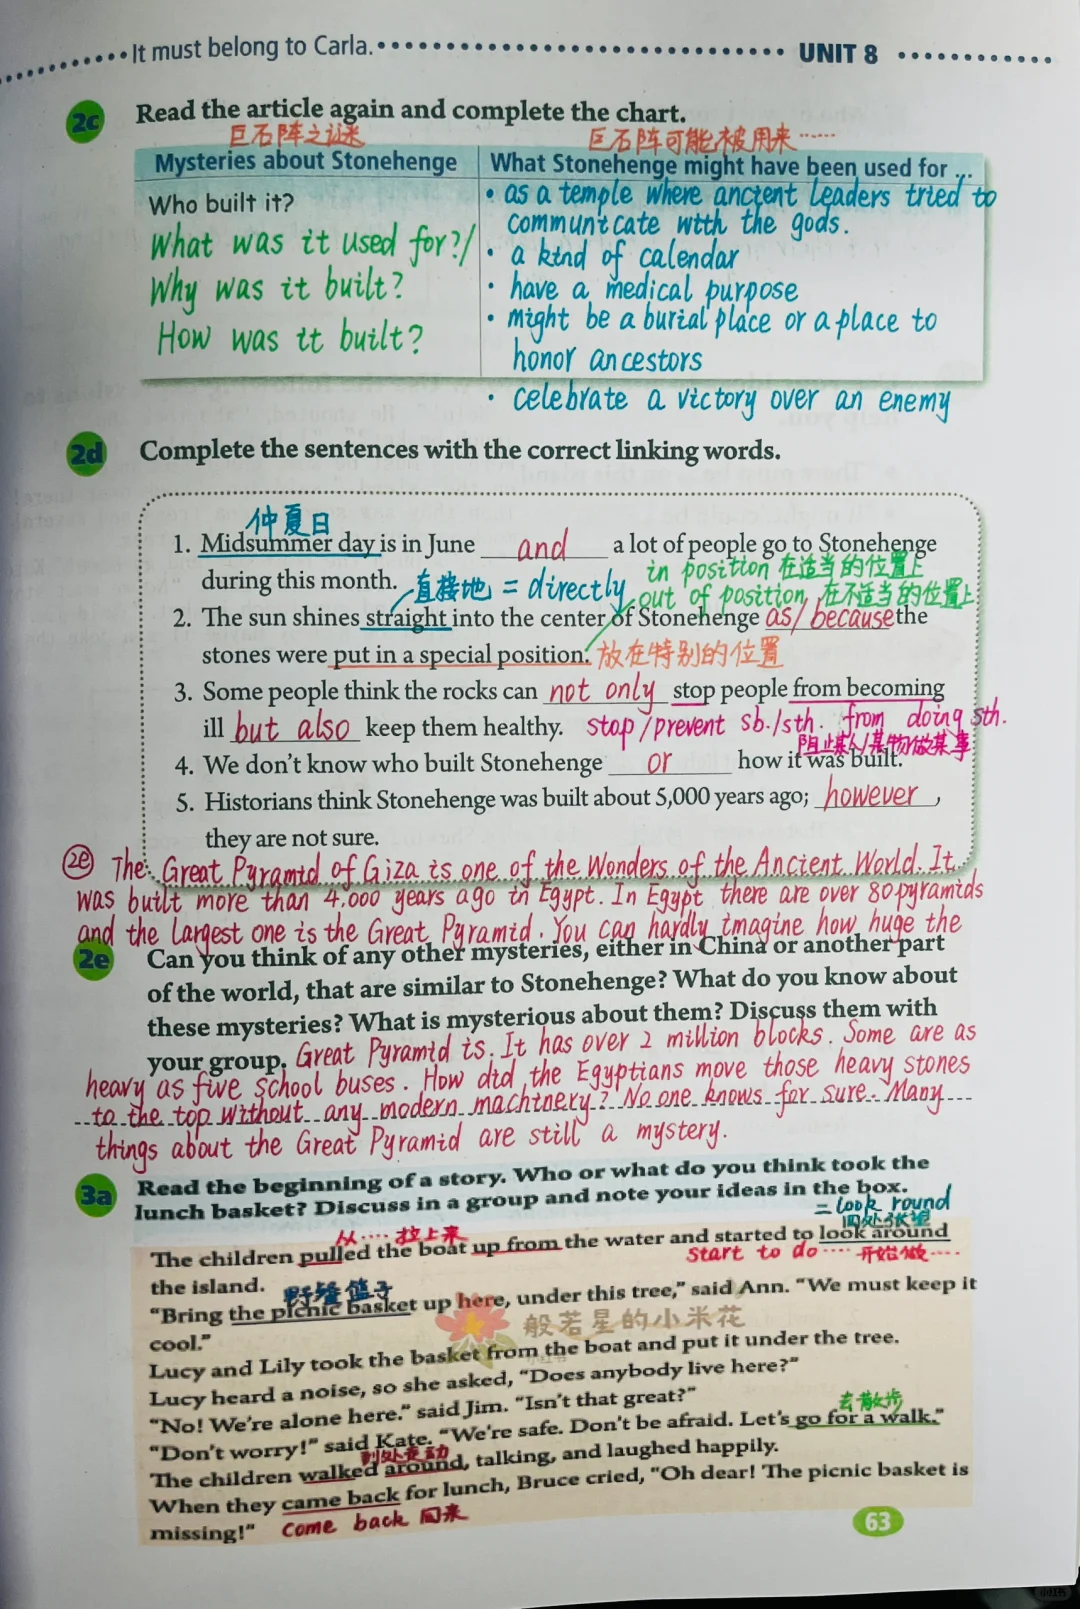 It must belong to Carla. UNIT 8
2c Read the article again and complete the chart.
巨石阵之谜 巨石阵可能被用来……
Mysteries about Stonehenge
Who built it?
What was it used for?/
Why was it built?
How was it built?
What Stonehenge might have been used for ...
• as a temple where ancient leaders tried to
communicate with the gods.
• a kind of calendar
• have a medical purpose
• might be a burial place or a place to
honor ancestors
• celebrate a victory over an enemy
2d Complete the sentences with the correct linking words.
仲夏日
1. Midsummer day is in June and a lot of people go to Stonehenge
during this month. 直接地 = directly
in position 在适当的位置上
out of position 在不适当的位置上
2. The sun shines straight into the center of Stonehenge as/because the
stones were put in a special position. 放在特别的位置
3. Some people think the rocks can not only stop people from becoming
ill but also keep them healthy. stop/prevent sb./sth. from doing sth.
阻止某人/某物做某事
4. We don't know who built Stonehenge or how it was built.
5. Historians think Stonehenge was built about 5,000 years ago; however,
they are not sure.
2e The Great Pyramid of Giza is one of the Wonders of the Ancient World. It
was built more than 4,000 years ago in Egypt. In Egypt there are over 80 pyramids
and the largest one is the Great Pyramid. You can hardly imagine how huge the
2e Can you think of any other mysteries, either in China or another part
of the world, that are similar to Stonehenge? What do you know about
these mysteries? What is mysterious about them? Discuss them with
your group. Great Pyramid is. It has over 2 million blocks. Some are as
heavy as five school buses. How did the Egyptians move those heavy stones
to the top without any modern machinery? No one knows for sure. Many
things about the Great Pyramid are still a mystery.
3a Read the beginning of a story. Who or what do you think took the
lunch basket? Discuss in a group and note your ideas in the box.
= look round
从…… 拉上来 四处张望
The children pulled the boat up from the water and started to look around
start to do…… 开始做……
the island. 野餐篮子
"Bring the picnic basket up here, under this tree," said Ann. "We must keep it
cool."
般若星的小米花
Lucy and Lily took the basket from the boat and put it under the tree.
Lucy heard a noise, so she asked, "Does anybody live here?"
"No! We're alone here." said Jim. "Isn't that great?"
去散步
"Don't worry!" said Kate. "We're safe. Don't be afraid. Let's go for a walk."
到处走动
The children walked around, talking, and laughed happily.
When they came back for lunch, Bruce cried, "Oh dear! The picnic basket is
missing!" come back 回来
63